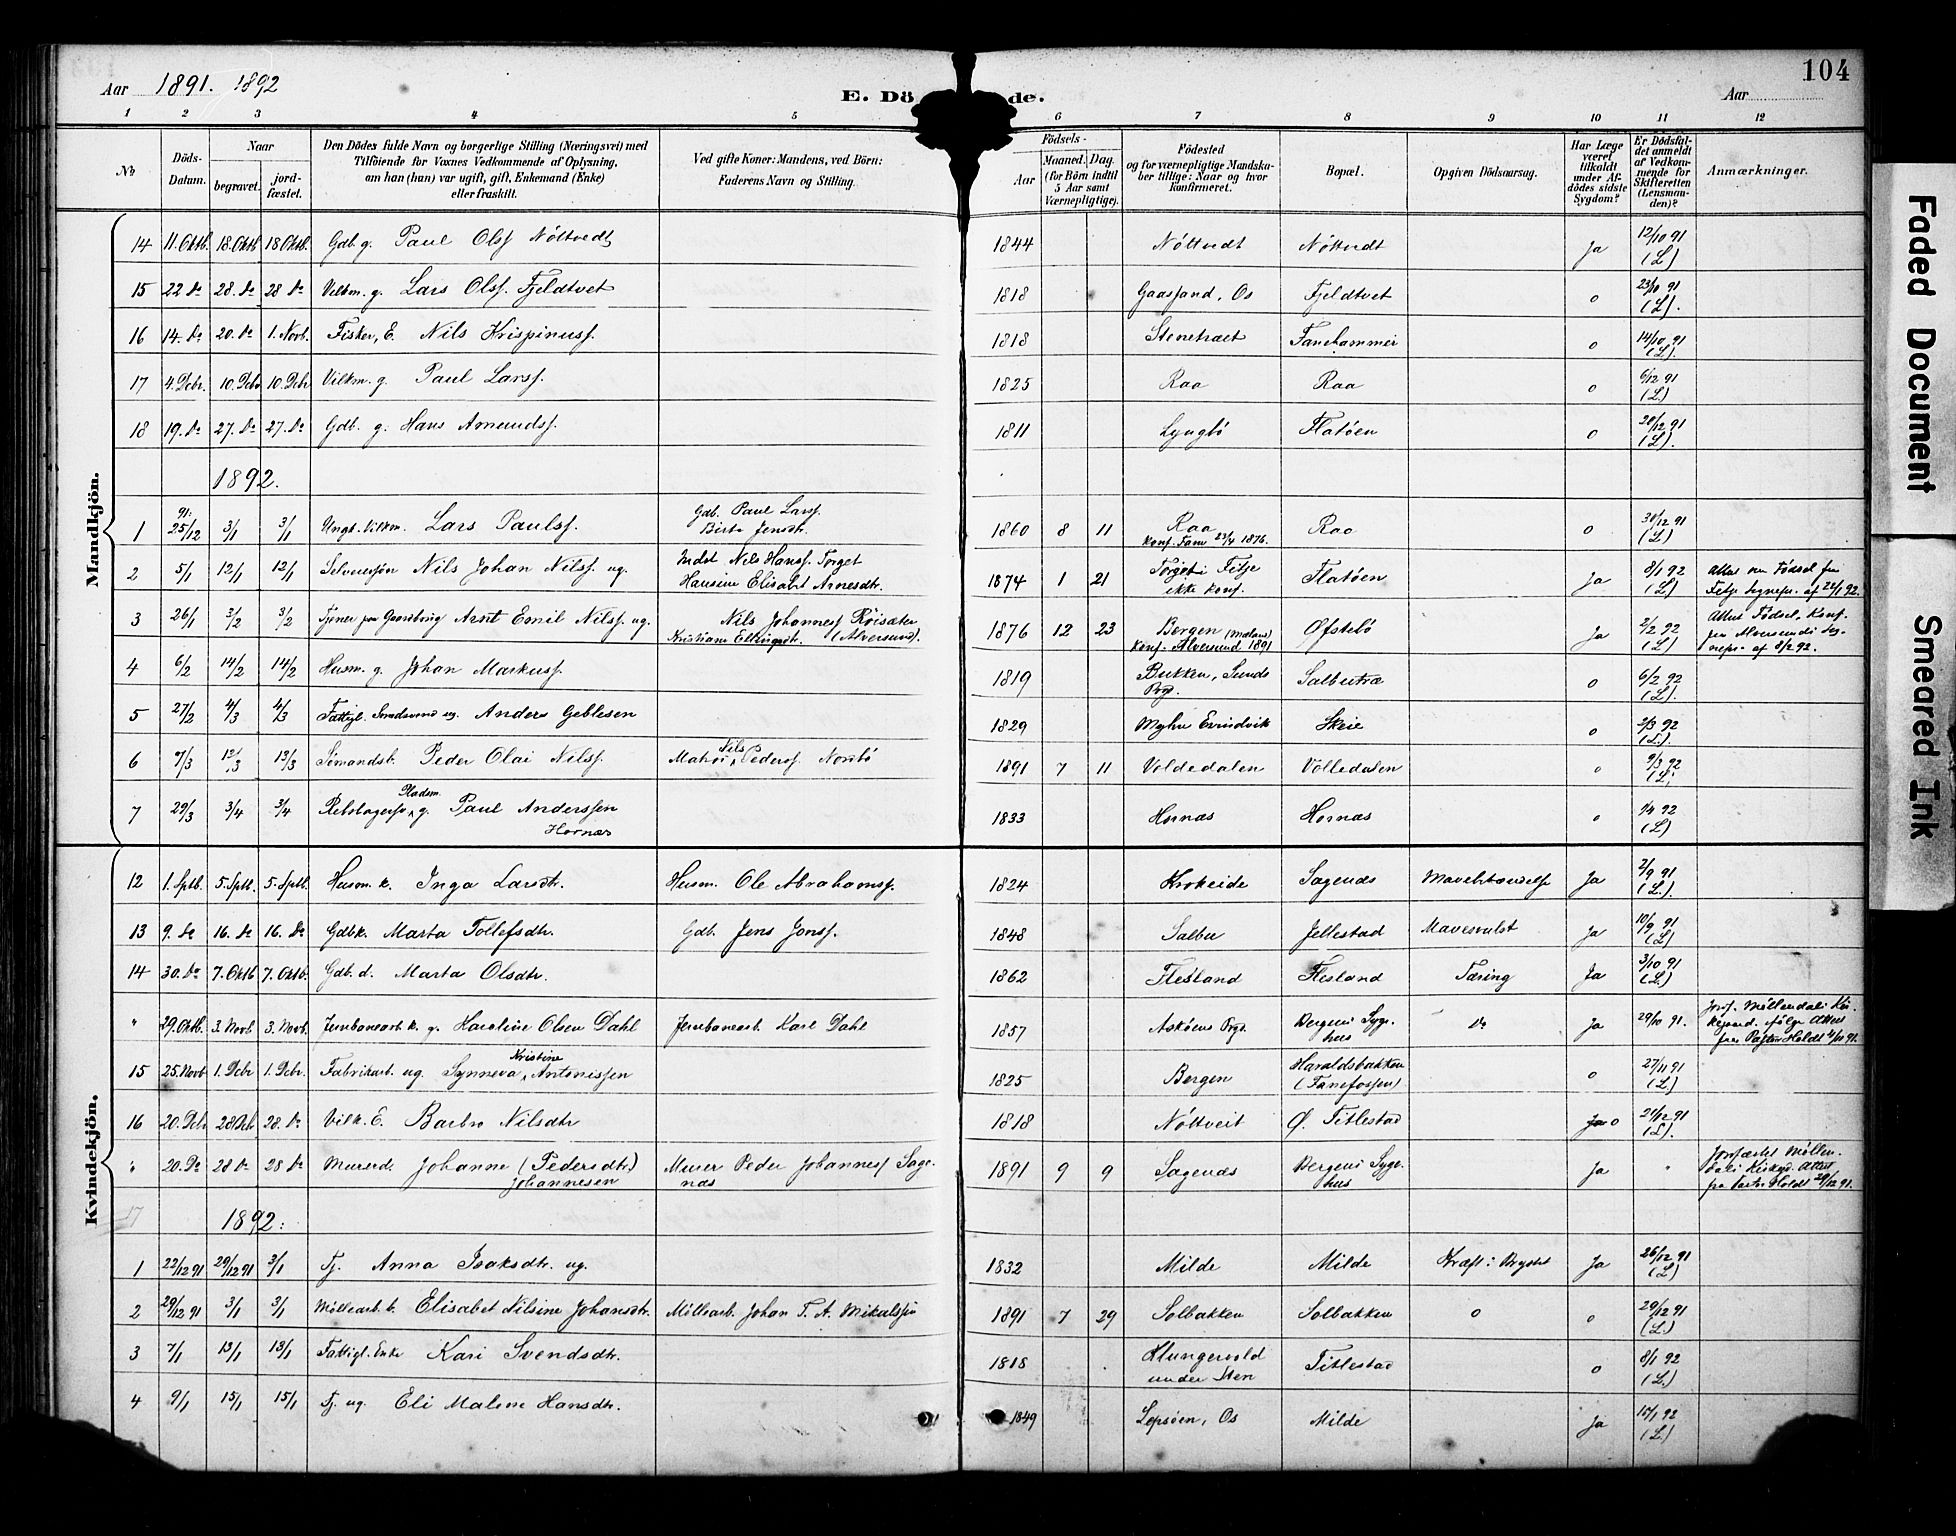 104
Aar 1891. 1892
E. Dö de.
Aar
1 2 3 4 5 6 7 8 9 10 11 12
No
Döds-Datum.
Naar
begravet.
jord-fæstet.
Den Dödes fulde Navn og borgerlige Stilling (Næringsvei) med Tilföiende for Voxnes Vedkommende af Oplysning, om han (hun) var ugift, gift, Enkemand (Enke) eller fraskilt.
Ved gifte Koner: Mandens, ved Börn: Faderens Navn og Stilling.
Födsels-
Aar
Maaned. Dag.
(for Börn indtil 5 Aar samt Værnepligtige).
Födested og for værnepligtige Mandska-ber tillige: Naar og hvor konfirmeret.
Bopæl.
Opgiven Dödsaarsag.
Har Læge været tilkaldt under Af-dödes sidste Sygdom?
Er Dödsfal-det anmeldt af Vedkom-mende for Skifteretten (Lensman-den)?
Anmærkninger.
Mandkjön.
14 11. Oktb. 18. Oktb 18 Oktb. Gdb. g. Paul Olsf Nöttvedt 1844 Nöttvedt Nöttvedt Ja 12/10 91 (L)
15 22 Do 28. Do 28 Do Vilkm. g. Lars Olsf. Fjeldtvet 1818 Gaassand, Os Fjeldtvet o 23/10 91 (L).
16 14. Do 20. Do 1. Novb. Fisker, E. Nils Krispinusf. 1818 Stenetræet Fanehammer o 14/10 91 (L).
17 4. Dcbr. 10. Dcbr 10. Dcbr Vilkm. g. Paul Larsf. 1825 Raa Raa o 6/12 91 (L.)
18 19. Do 27. Do 27. Do Gdb. g. Hans Amundsf. 1811 Lyngbö Flatöen o 20/12 91 (L).
1892.
1 91: 25/12 3/1 3/1 Ungk. Vilkm. Lars Paulsf. Gdb. Paul Larsf. Birte Jensdtr. 1860 8 11 Raa Konf. Fane 23/4 1876. Raa o 30/12 91 (L)
2 5/1 12/1 12/1 Selveiersön Nils Johan Nilsf. ug. Indst Nils Hansf. Torget Hansine Elisabet Arnesdtr. 1874 1 21 Torget i Fitje ikke konf. Flatöen Ja 8/1 92 (L) Attest om Födsel fra Fitje Sognepr. af 22/1 92.
3 26/1 3/2 3/2 Tjener paa Gaardbrug Arnt Emil Nilsf. ug. Nils Johannesf Röisæter Kristiane Ellingsdt. (Alversund). 1876 12 23 Bergen Konf. Alversund 1891 Öfstebö Ja 2/2 92 (L) Attest Födsel, Konf. fra Alversunds Sog-nepr. af 8/2 92.
4 6/2 14/2 14/2 Husm. g. Johan Markusf. 1819 Bukken, Sunds Prgj. Salbutræ o 6/2 92 (L).
5 27/2 4/3 4/3 Fattigl. ug. Anders Geblesen 1829 Myhre Evindvik Skeie o 2/3 92 (L).
6 7/3 13/3 13/3 Sömandsb. Peder Olai Nilsf. Matros Nils Pedersf. Nordbö 1891 7 11 Voldedalen Volledalen o 9/3 92 (L;
7 29/3 3/4 3/4 Rebslagersv. Pladsm. g. Paul Anderssen Hornæs 1833 Hornæs Hornæs o 1/4 92 (L)
Kvindekjön.
12 1. Sptb. 5. Sptb. 5. Sptb. Husm. k. Inga Larsdtr. Husm. Ole Abrahamsf. 1824 Krokeide Sagenæs Mavebetændelse Ja 2/9 91 (L.)
13 9. Do 16. Do 16. Do Gdbk. Marta Tollefsdtr. Gdb. Jens Jonsf. 1848 Salbu Jellestad Mavesvulst Ja 10/9 91 (L)
14 30. Do 7. Oktb 7. Oktb. Gdb. d. Marta Olsdtr. 1862 Flesland Flesland Tæring Ja 3/10 91 (L.)
" 29. Oktb. 3. Novb 3. Novb. Jernbanearb. k. g. Karoline Olsen Dahl Jernbanearb. Karl Dahl 1857 Asköens Prgj. Bergens Syge-hus Do Ja 29/10 91. Jordf. Möllendals Kir-kegaard ifölge Attest fra Pastor Holdt 4/11 91.
15 25. Novb 1. Dcbr 1. Dcbr. Fabrikarb. ug. Synneva Kristine Antonissen 1825 Bergen Haraldsbakken (Fanefossen) o 27/11 91 (L.)
16 20. Dcbr 28 Dcb. 28. Do Vilk. E. Barbro Nilsdtr 1818 Nöttveit Ø. Titlestad Ja o 21/12 91 (L).
" 20. Do 28 Do 28 Do Murerd. Johanne (Pedersdtr.) Johannesen Murer Peder Johannesf Sage-næs 1891 9 9 Sagenæs Bergens Syge-hus Ja " Jordfæstet Möllen-dals Kirkegd. Attest fra Pastor Holdt 29/12 91.
17 1892:
1 22/12 91 29/12 91 3/1 Tj. Anna Isaksdtr. ug. 1832 Milde Milde Kræft i Brystet Ja 26/12 91 (L)
2 29/12 91 3/1 3/1 Möllearb. b. Elisabet Nilsine Johansdtr. Möllearb. Johan T. A. Mikalssen 1891 7 29 Solbakken Solbakken o o 29/12 91 (L.)
3 7/1 13/1 13/1 Fattigl. Enke Kari Svendsdtr. 1818 Klungervold under Sten Titlestad o 8/1 92 (L.)
4 9/1 15/1 15/1 Tj. ug. Eli Malene Hansdtr. 1849 Lepsöen, Os Milde Ja 15/1 92 (L)
Faded Document
Smeared Ink